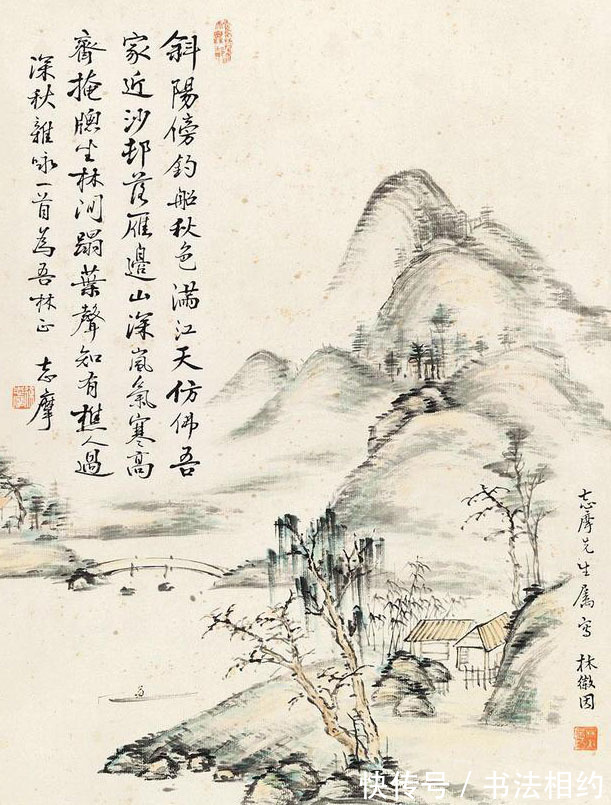 斜陽傍釣船秋色滿江天仿佛吾
家近沙邨落雁邊山深嵐氣寒高
齋掩牕坐林间蹋葉聲知有樵人過
深秋雜咏一首為吾林正 志摩
志摩先生属寫 林徽因
快传号／书法相约